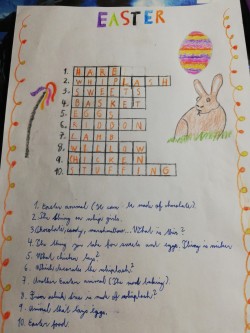 EASTER
1. HARE
2. WHIPLASH
3. SWEETS
4. BASKET
5. EGGS
6. RIBBON
7. LAMB
8. WILLOW
9. CHICKEN
10. STUFFING
1. Easter animal (It can be made of chocolate).
2. The thing to whip girls.
3. Chocolate, candy, marshmallow... What is this?
4. The thing you take for sweets and eggs. It is made of
5. What chicken lays?
6. Which decorates the whiplash?
7. Another Easter animal (The cook baking).
8. From which tree is made of whiplash?
9. Animal that lays eggs.
10. Easter food.